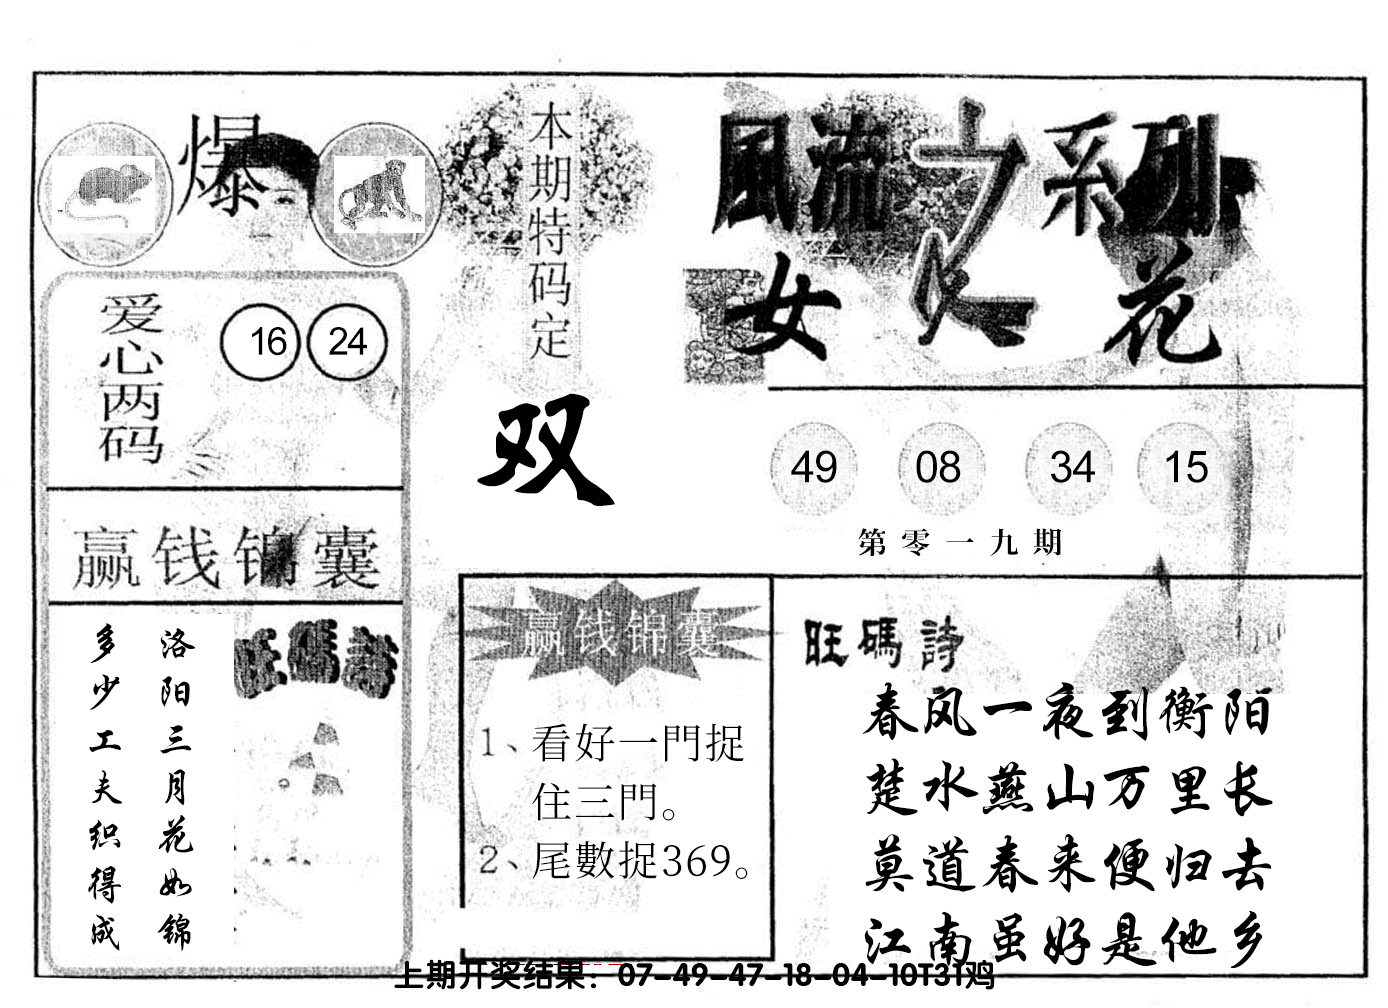 爆
本期特码定
双
風流之系列
女人花
爱心两码
16 24
49 08 34 15
第零一九期
赢钱锦囊
洛阳三月花如锦
多少工夫织得成
旺碼詩
赢钱锦囊
1、看好一門捉
住三門。
2、尾數捉369。
旺碼詩
春风一夜到衡阳
楚水燕山万里长
莫道春来便归去
江南虽好是他乡
上期开奖结果：07-49-47-18-04-10T31鸡